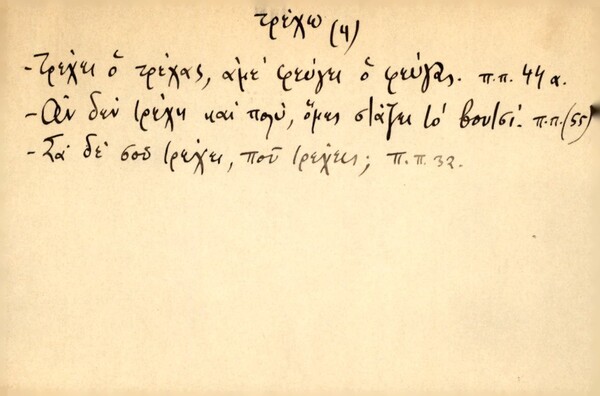 τρέχω (4)
- Τρέχει ὁ τρέχας, ἀμέ φεύγει ὁ φεύγας. π.π. 44 α.
- Ἄν δέν τρέχῃ καί πολύ, ὅμως στάζει τό βουτσί. π.π. (55)
- Σά δέ σοῦ τρέχει, ποῦ τρέχεις; π.π. 32.